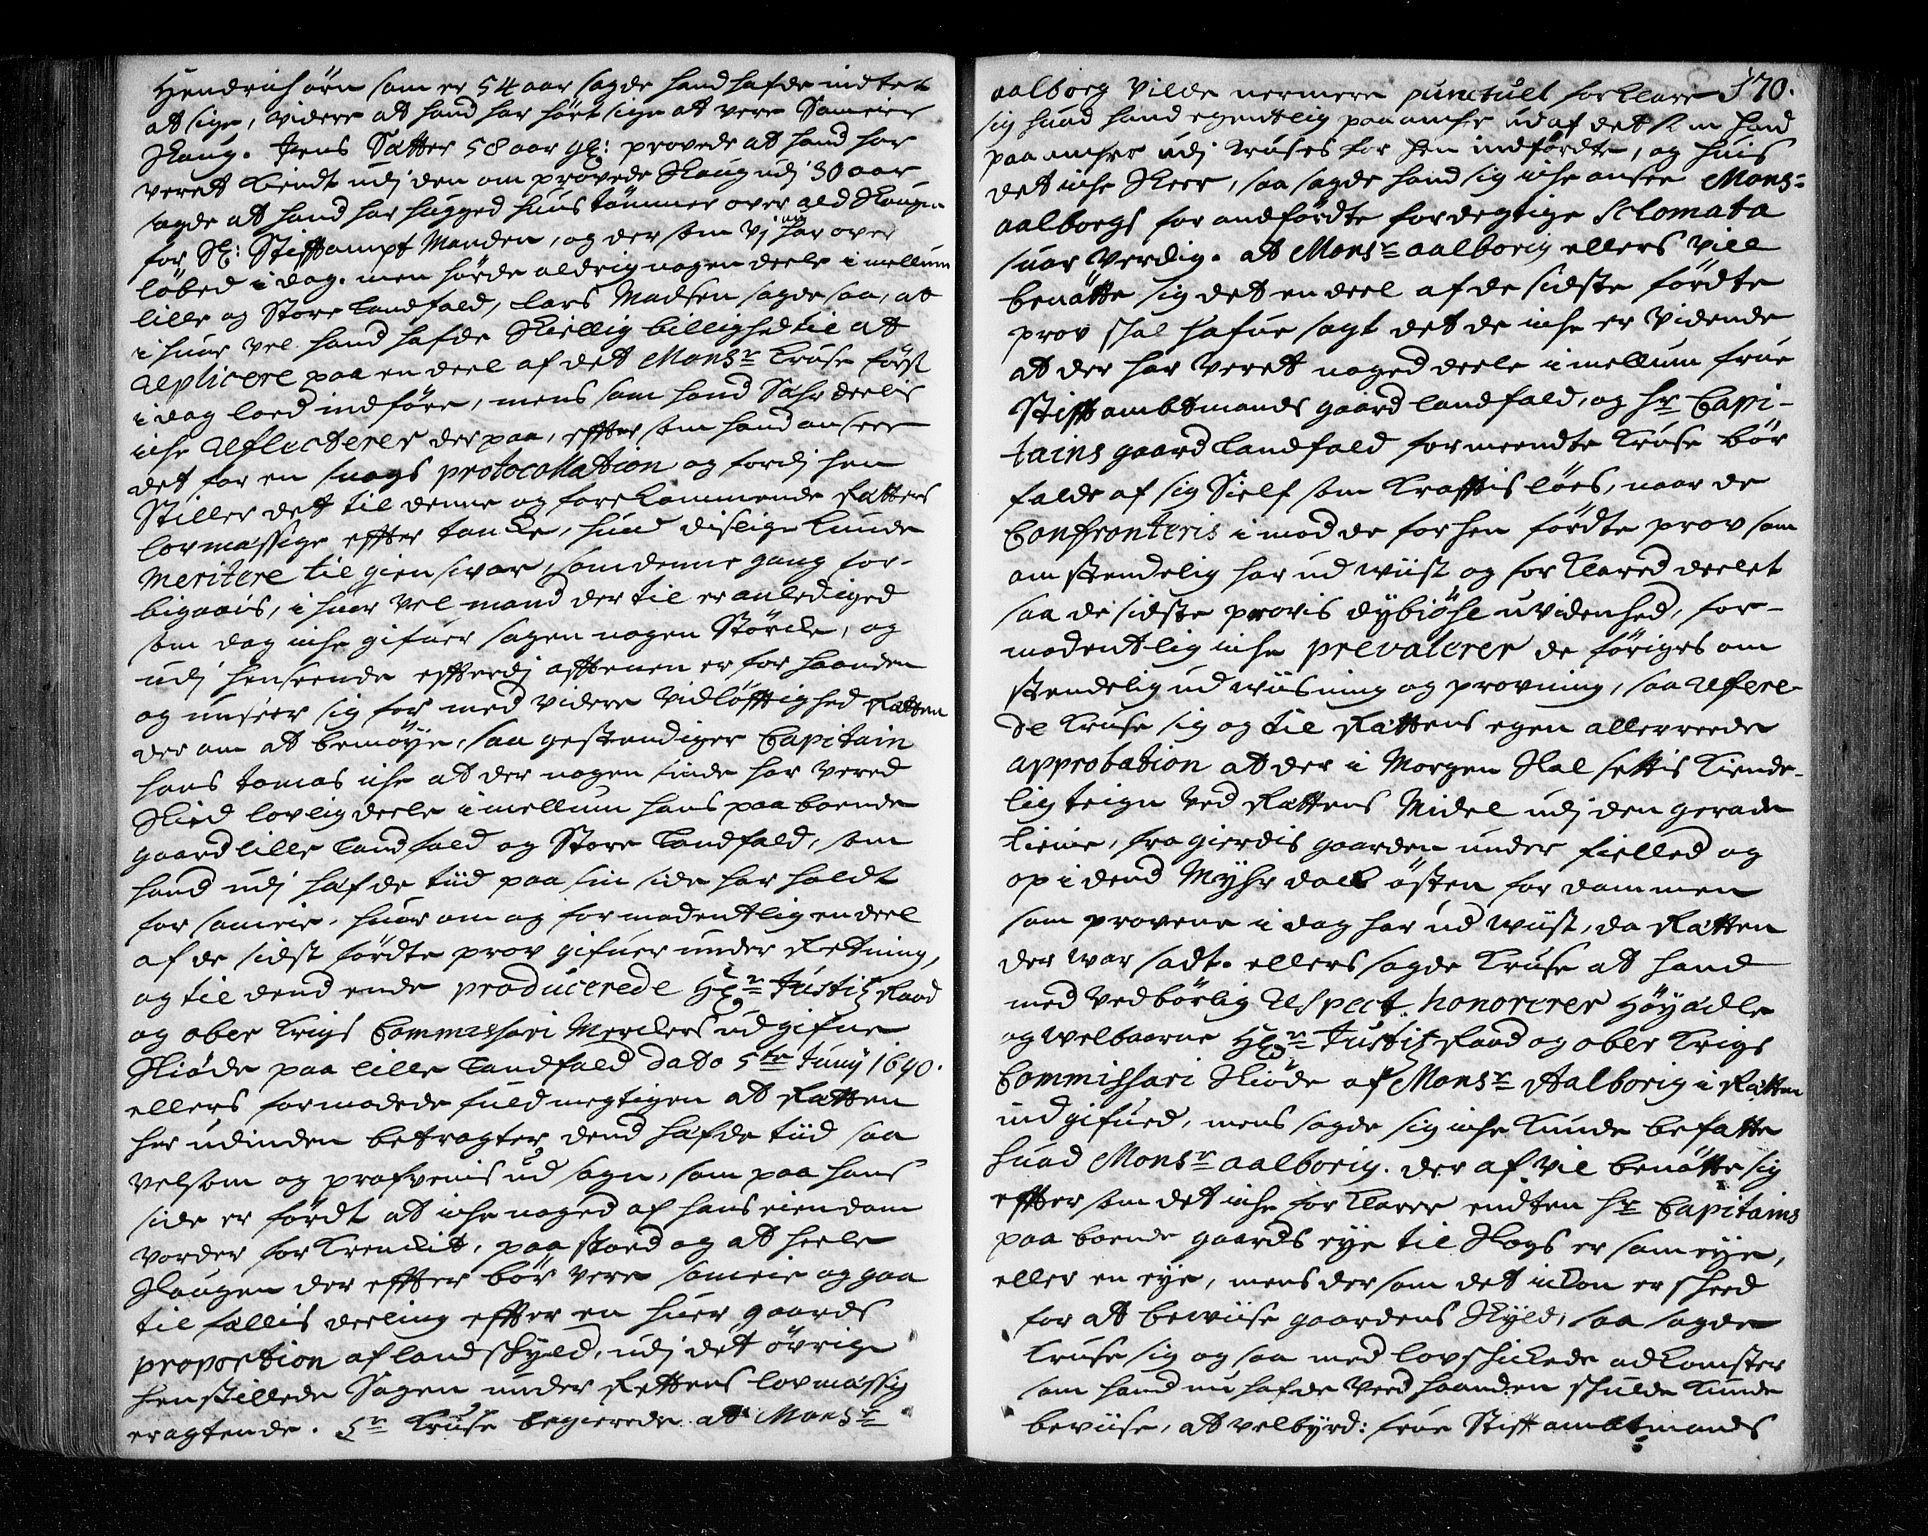 Hendrich ørn som er 54 aar sagde hand hafde indtet
at sige, videre at hand har hört sige at vere Sameie
Skaug. Jens Sætter 58 aar gl: provede at hand har
verett kiendt udj den om prøvede Skaug udj 30 aar
sagde at hand har hugged huus tömmer over ald Skaugen
for Sl: Stifftampt Manden, og der som vj nu har over
løbed i dag. men hørde aldrig nogen deele imellum
lille og Store Landfald, Lars Madsen sagde saa, at
i huor vel hand hafde skiellig billighed til at
replicere paa en deel af det Monsr Kruse först
i dag loed indföre, mens som hand Sahr deelis
iche reflecterer der paa, effter som hand anseer
det for en snags protocollation og fordj hen
Stiller det til denne og forekommende Rætters
lovmæssige effter tancke, huad dislige kunde
meritere til giensvar, som denne gang for-
bigaais, i huor vel mand der til er anlediged
som dog iche gifuer sagen nogen Störcke, og
udj henseende effterdj afftenen er for haanden
og unseer sig for med videre vidløfftighed Rætten
der om at bemøye, saa gestendiger Capitain
Hans Tomas iche at der nogen sinde har vered
skied lovlig deele imellum hans paa boende
gaard lille Landfald og Store Landfald, som
hand udj hafde tiid paa sin side har holdt
for sameie, huor om og formodentlig en deel
af de sidst förte prov gifuer under Retning,
og til dend ende producerede Hr Justitz Raad
og ober Krigs Commissari Werckers udgifne
Skiøde paa lille Landfald dato 5te Juny 1690.
ellers formodede fuldmegtigen at Rætten
her udinden betragter dend hafde tiid saa
velsom og prøfvenis ud sagn, som paa hans
side er fördt at iche noged af hans eiendom
vorder forkrencket, paastoed og at heele
Skaugen der effter bör vere sameie og gaa
til fællis deeling effter en huer gaards
proportion af landskyld, udj det øvrige
henstillede Sagen under Rettens lovmæssig
eragtende. Sr Kruse begierede at Monsr
aalborg vilde nermere punctuel forklare 170.
sig huad hand egentlig paaancker ud af det som hand
paaancker udj Kruses for hen indførdte, og huis
det iche skeer, saa sagde hand sig iche ansee Mons=
aalborgs for andfördte fordegtige Sclomata
suar verdig. at Monsr aalborg ellers vill
benøtte sig det en deel af de sidste fördte
prov skal hafue sagt det de iche er vidende
at der har verett noged deele imellum frue
Stifftambtmands gaard Landfald, og hr Capi-
tains gaard Landfald formeendte Kruse bör
falde af sig Sielf som krafftisløes, naar de
Confronteris imod de forhen fördte prov som
omstendelig har udwiist og forklared deelet
saa de sidste provis dybiöse uvidenhed, for-
modentlig iche prevalerer de föriges om
stendelig udwiisning og provning, saa refere-
de Kruse sig og til Rættens egen allereede
approbation at der i Morgen skal settis kiende-
lig teign ved Rættens Midel udj den gerade
Liene, fra gierdis gaarden under fielled og
op i dend Myhr dall østen for dammen
som provene i dag har ud wiist, da Rætten
der war sadt. ellers sagde Kruse at hand
med vedbörlig respect honorerer Høyædle
og welbaarne Hr Justitz Raad og ober Krigs
Commissari Skiøde af Monsr Aalborig i Rætten
indgifued, mens sagde sig iche kunde befatte
huad Monsr aalborig. der af vil benøtte sig
effter som det iche forklarer endten hr Capitains
paaboende gaards eye til skogs er sameye,
eller en eye, mens der som det ickon er skeed
for at bewiise gaardens skyld, saa sagde
Kruse sig og saa med lovskickede adkomster
som hand nu hafde ved haanden skulde kunde
beviise, at velbyrd: frue Stifftambtmands